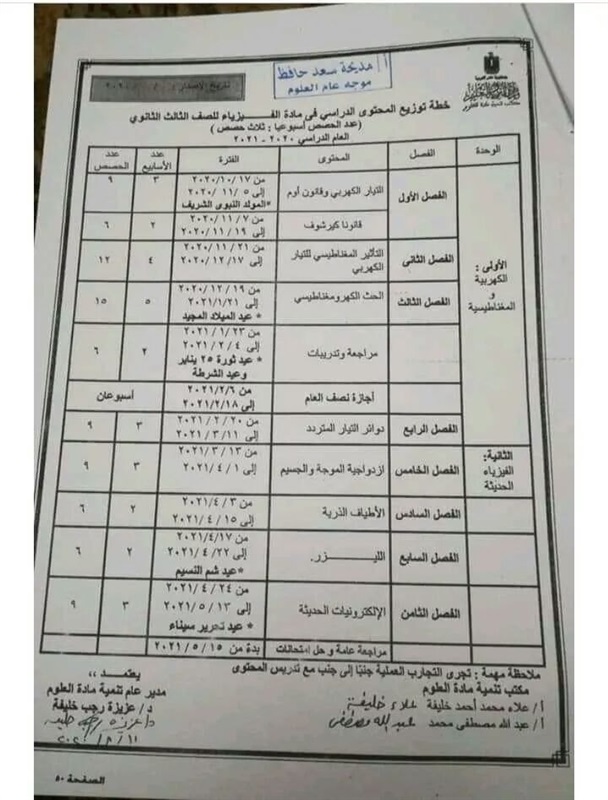 أ/ مديحة سعد حافظ
موجه عام العلوم
تاريخ الإصدار :
خطة توزيع المحتوى الدراسي فى مادة الفـــــيزياء للصف الثالث الثانوي
(عدد الحصص أسبوعيا : ثلاث حصص)
العام الدراسي ٢٠٢٠ - ٢٠٢١
الوحدة الفصل المحتوى الفترة عدد الأسابيع عدد الحصص
الأولى :
الكهربية
و
المغناطيسية
الفصل الأول التيار الكهربي وقانون أوم
من ٢٠٢٠/١٠/١٧
إلى ٥ / ١١ / ٢٠٢٠
*المولد النبوى الشريف
٣ ٩
قانونا كيرشوف
من ٧ / ١١ / ٢٠٢٠
إلى ١٩ / ١١ / ٢٠٢٠
٢ ٦
الفصل الثانى التأثير المغناطيسي للتيار
الكهربي
من ٢١ / ١١ / ٢٠٢٠
إلى ١٧ / ١٢ / ٢٠٢٠
٤ ١٢
الفصل الثالث الحث الكهرومغناطيسي
من ١٩ / ١٢ / ٢٠٢٠
إلى ٢٠٢١/١/٢١
* عيد الميلاد المجيد
٥ ١٥
مراجعة وتدريبات
من ٢٣ / ١ / ٢٠٢١
إلى ٤ / ٢ / ٢٠٢١
* عيد ثورة ٢٥ يناير
وعيد الشرطة
٢ ٦
أجازة نصف العام
من ٢٠٢١/٢/٦
إلى ٢٠٢١/٢/١٨
أسبوعان
الفصل الرابع دوائر التيار المتردد
من ٢٠ / ٢ / ٢٠٢١
إلى ١١ / ٣ / ٢٠٢١
٣ ٩
الثانية:
الفيزياء
الحديثة
الفصل الخامس ازدواجية الموجة والجسيم
من ١٣ / ٣ / ٢٠٢١
إلى ١ / ٤ / ٢٠٢١
٣ ٩
الفصل السادس الأطياف الذرية
من ٣ / ٤ / ٢٠٢١
إلى ١٥ / ٤ / ٢٠٢١
٢ ٦
الفصل السابع الليـــــــزر.
من ٢٠٢١/٤/١٧
إلى ٢٢ / ٤ / ٢٠٢١
*عيد شم النسيم
٢ ٦
الفصل الثامن الإلكترونيات الحديثة
من ٢٤ / ٤ / ٢٠٢١
إلى ١٣ / ٥ / ٢٠٢١
* عيد تحرير سيناء
٣ ٩
مراجعة عامة وحل امتحانات بدءً من ١٥ / ٥ / ٢٠٢١
ملاحظة مهمة : تجرى التجارب العملية جنبًا إلى جنب مع تدريس المحتوى
مكتب تنمية مادة العلوم
أ/ علاء محمد أحمد خليفة علاء خليفة
أ/ عبد الله مصطفى محمد عبد الله مصطفى
يعتمد ،،
مدير عام تنمية مادة العلوم
د/ عزيزة رجب خليفة
الصفحة ٥٠